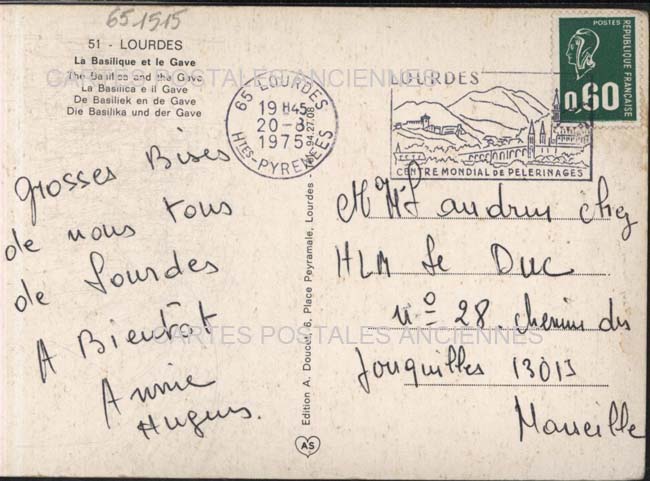 65.1515
51 - LOURDES
La Basilique et le Gave
The Basilica and the Gave
La Basilica e il Gave
De Basiliek en de Gave
Die Basilika und der Gave
CARTES POSTALES ANCIENNES
65 LOURDES
19 H45
20-8
1975
HTES-PYRENEES
LOURDES
CENTRE MONDIAL DE PELERINAGES
POSTES
REPUBLIQUE FRANÇAISE
0,60
Grosses Bises
de nous tous
de Lourdes
A Bientôt
Annie
Hugues.
Edition A. Doucet, 6, Place Peyramale, Lourdes - 94.27.08
AS
chez
HLM Le Duc
n° 28 chemin des
Jonquilles 13013
Marseille
CARTES POSTALES ANCIENNES